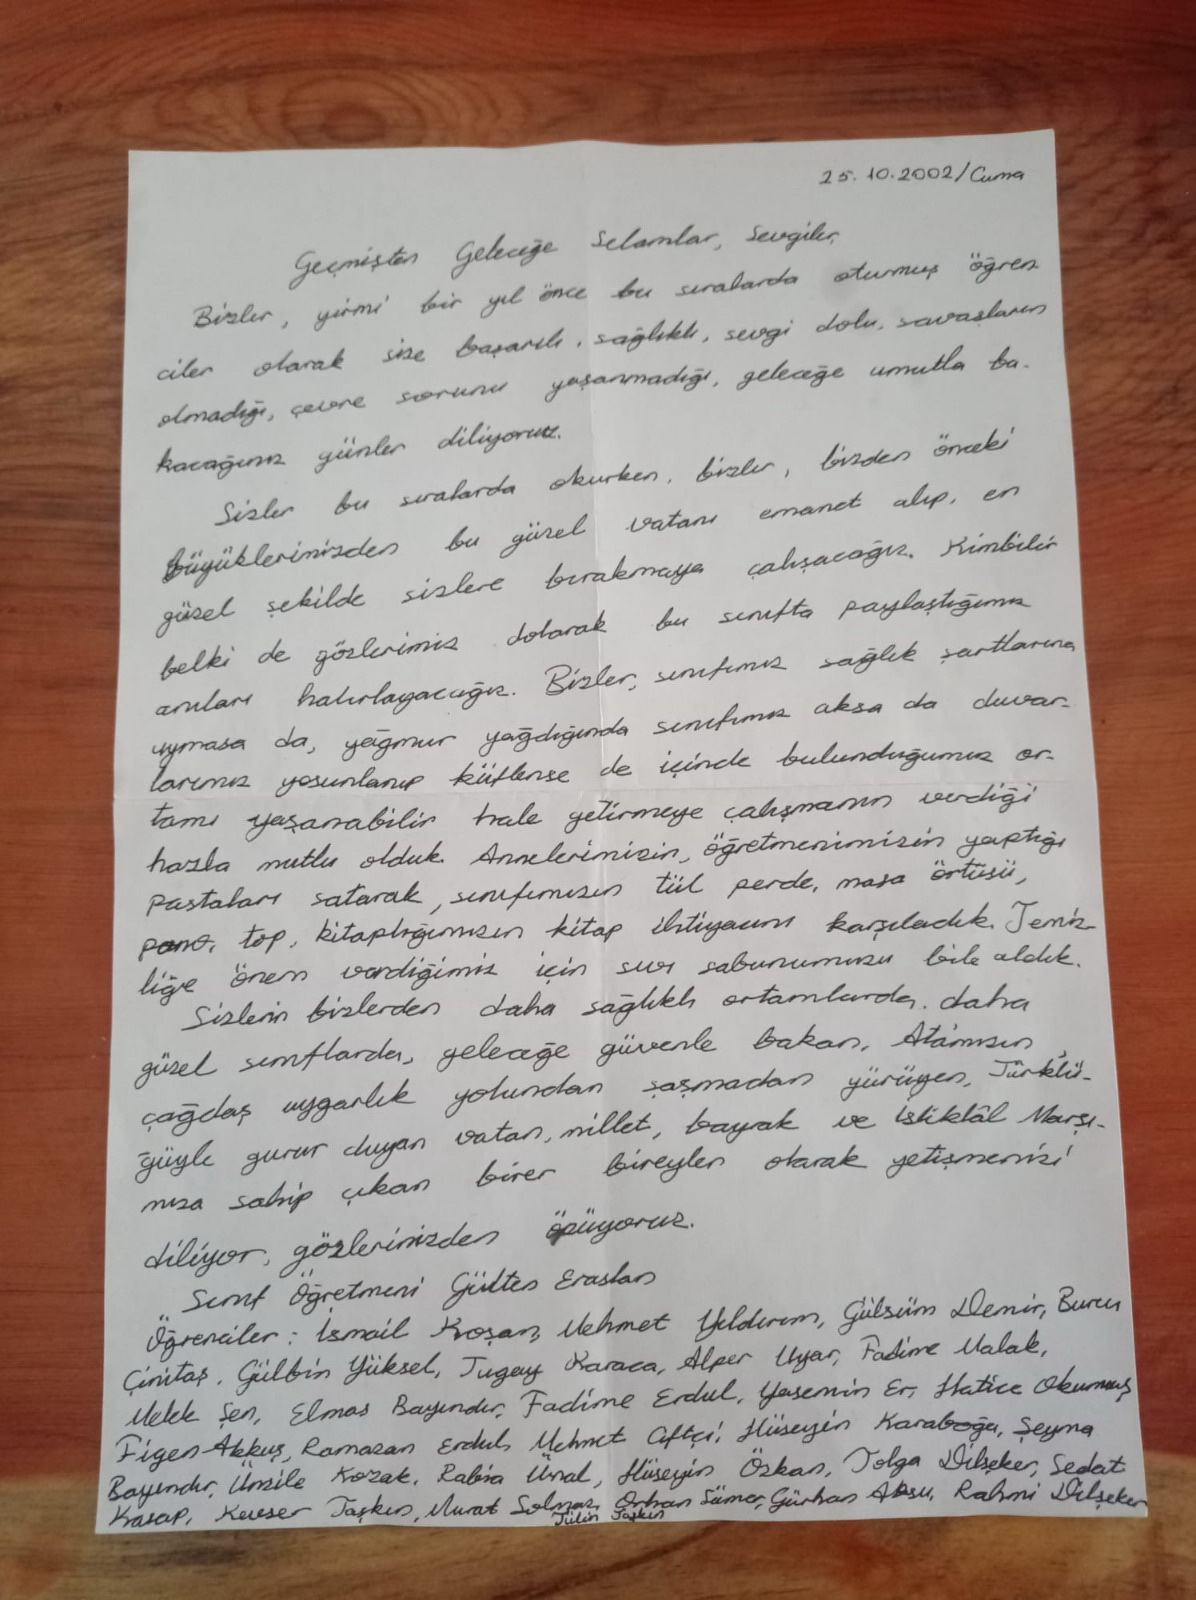 25.10.2002/Cuma
Geçmişten Geleceğe Selamlar, Sevgiler,
Bizler, yirmi bir yıl önce bu sıralarda oturmuş öğren
ciler olarak size başarılı, sağlıklı, sevgi dolu, savaşların
olmadığı, çevre sorunu yaşanmadığı, geleceğe umutla ba-
kacağınız günler diliyoruz.
Sizler bu sıralarda okurken, bizler, bizden önceki
büyüklerimizden bu güzel vatanı emanet alıp, en
güzel şekilde sizlere bırakmaya çalışacağız. Kimbilir
belki de gözlerimiz dolarak bu sınıfta paylaştığımız
anıları hatırlayacağız. Bizler, sınıfımız sağlık şartlarına
uymasa da, yağmur yağdığında sınıfımız aksa da duvar-
larımız yosunlanıp küflense de içinde bulunduğumuz or-
tamı yaşanabilir hale getirmeye çalışmanın verdiği
hazla mutlu olduk. Annelerimizin, öğretmenimizin yaptığı
pastaları satarak, sınıfımızın tül perde, masa örtüsü,
pano, top, kitaplığımızın kitap ihtiyacını karşıladık. Temiz-
liğe önem verdiğimiz için sıvı sabunumuzu bile aldık.
Sizlerin bizlerden daha sağlıklı ortamlarda, daha
güzel sınıflarda, geleceğe güvenle bakan, Ata'mızın
çağdaş uygarlık yolundan şaşmadan yürüyen, Türklü-
ğüyle gurur duyan vatan, millet, bayrak ve İstiklâl Marşı-
mıza sahip çıkan birer bireyler olarak yetişmenizi
diliyor, gözlerinizden öpüyoruz.
Sınıf Öğretmeni Gülten Eraslan
Öğrenciler: İsmail Koşan, Mehmet Yıldırım, Gülsüm Demir, Burcu
Çinitaş, Gülbin Yüksel, Tugay Karaca, Alper Uyar, Fadime Malak,
Melek Şen, Elmas Bayındır, Fadime Erdul, Yasemin Er, Hatice Okumuş
Figen Akkuş, Ramazan Erdul, Mehmet Çiftçi, Hüseyin Karaboğa, Şeyma
Bayındır, Ümile Kozak, Rabia Ünal, Hüseyin Özkan, Tolga Dilşeker, Sedat
Kasap, Kevser Taşkın, Murat Solmaz, Orhan Sümer, Gürhan Aksu, Rahmi Dilşeker
Tülin Taşkın